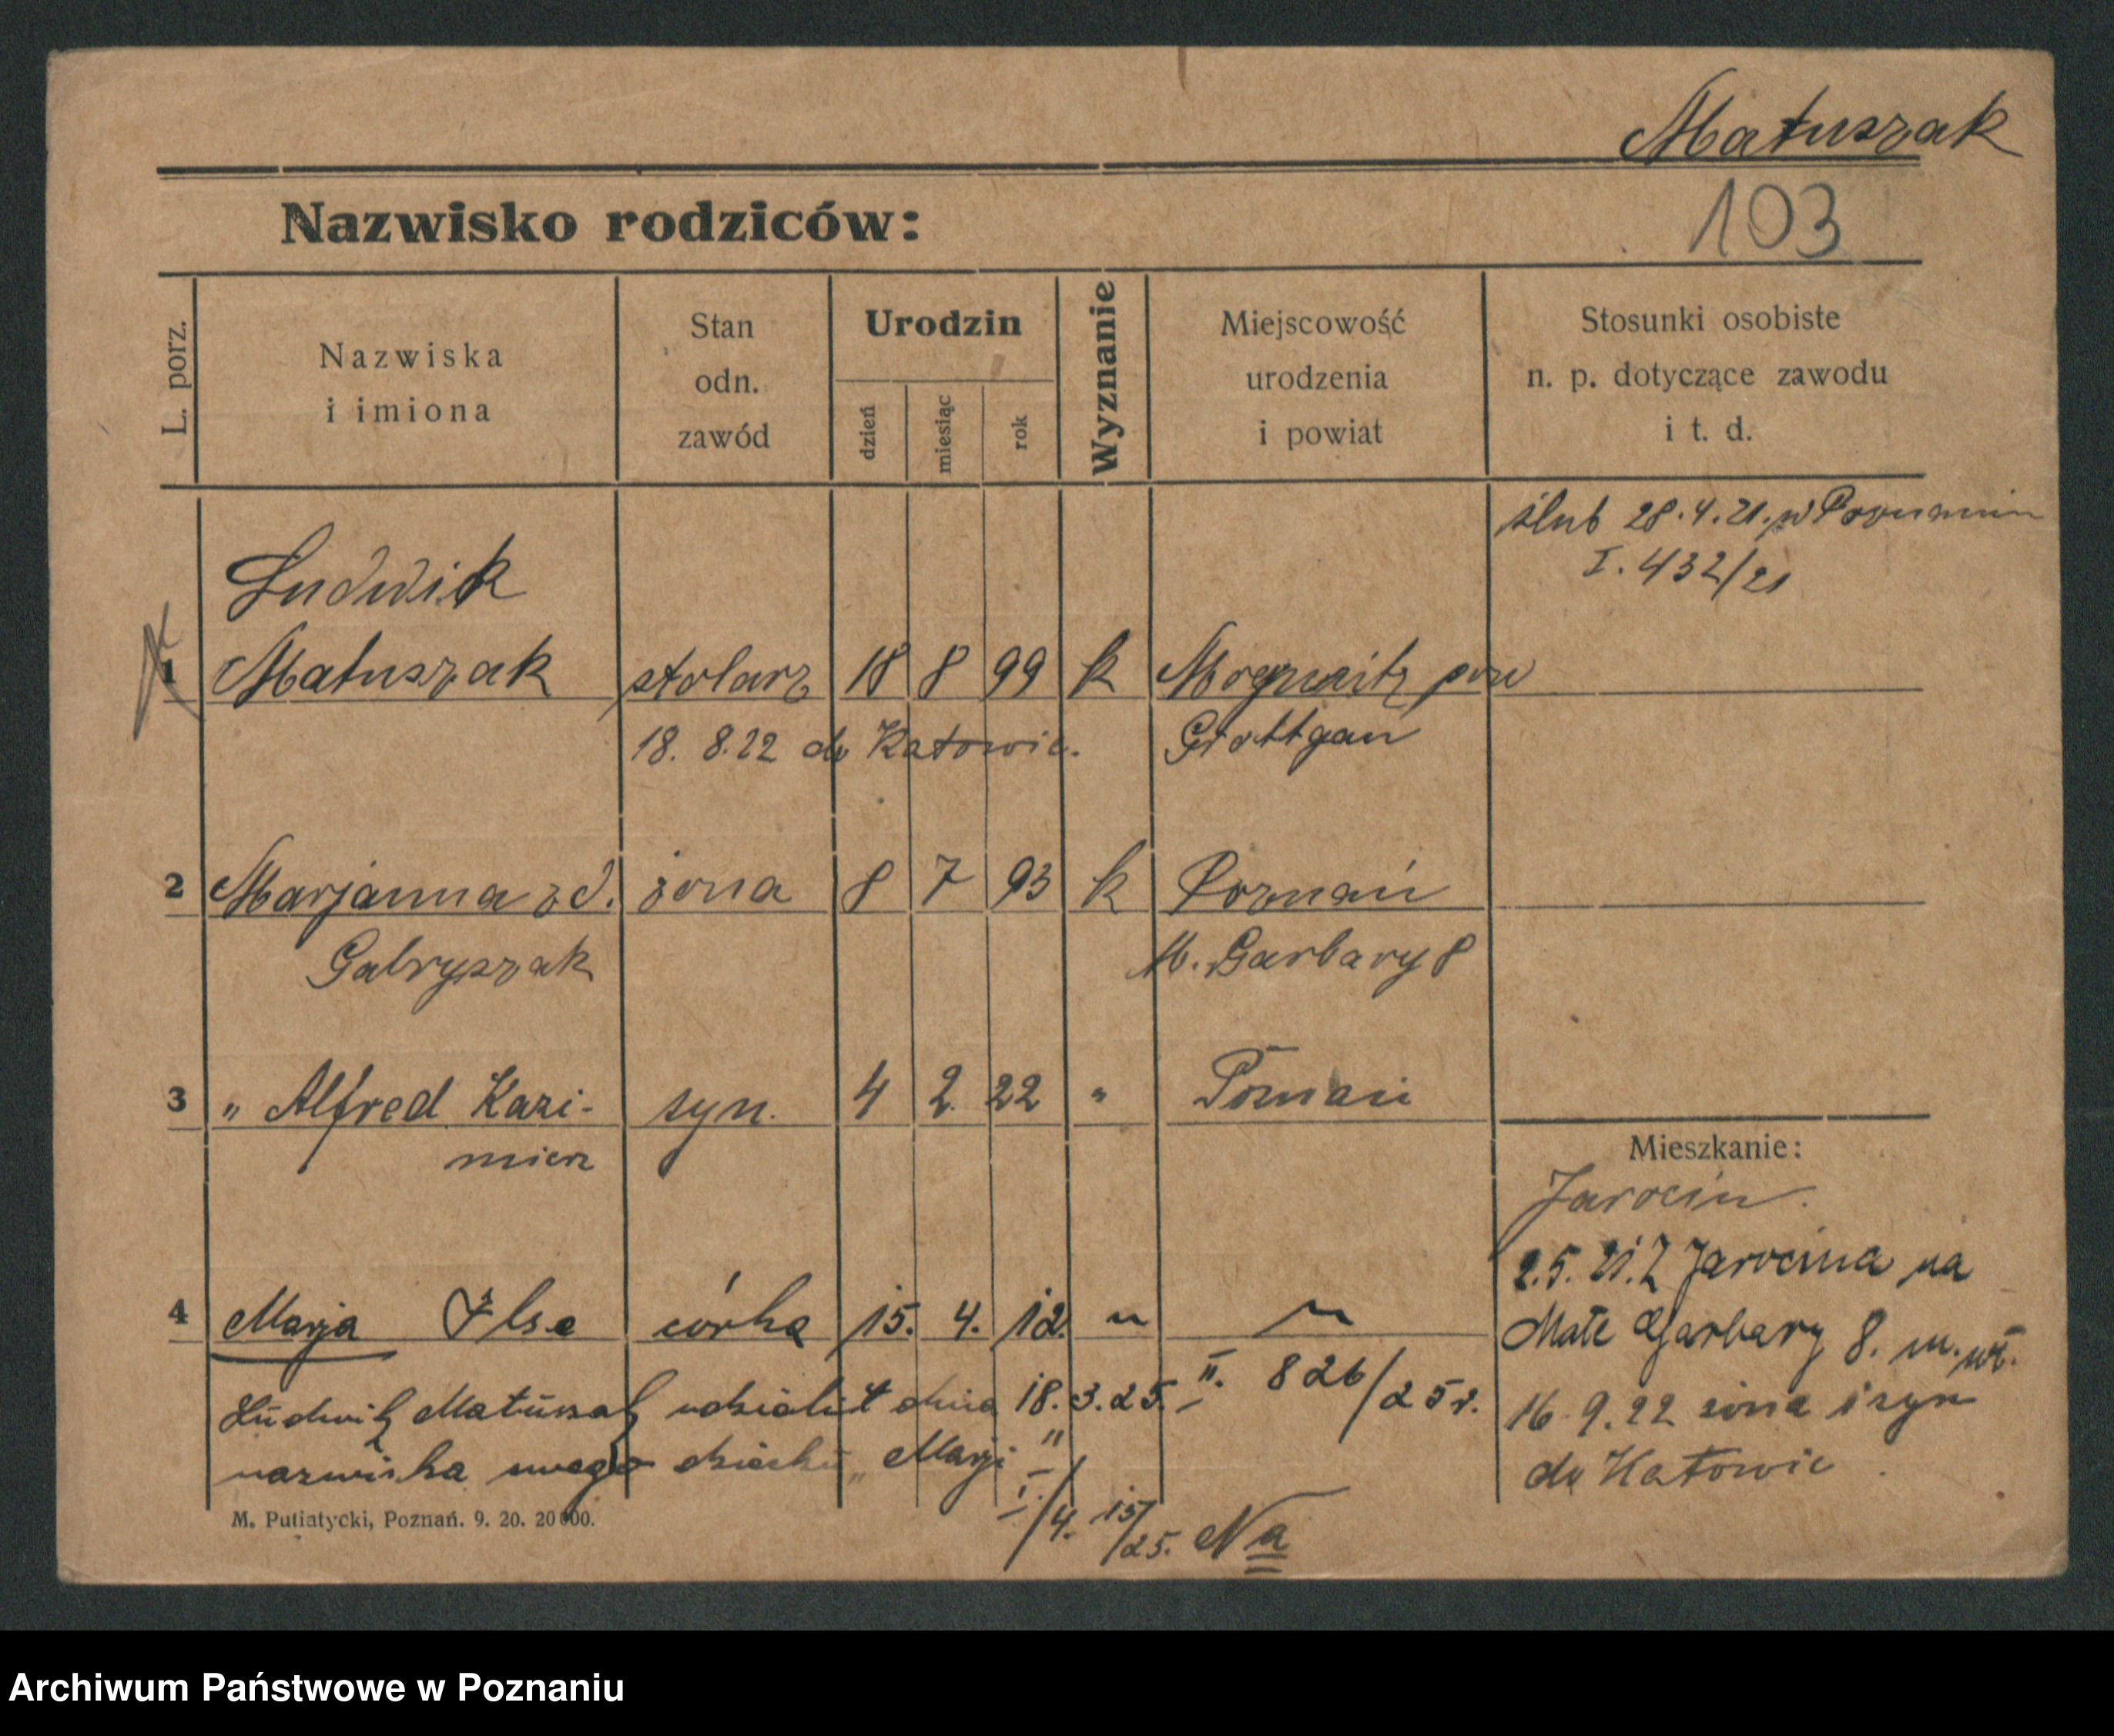 Matuszak
103
Nazwisko rodziców:
L. porz.
Nazwiska
i imiona
Stan
odn.
zawód
Urodzin
dzień
miesiąc
rok
Wyznanie
Miejscowość
urodzenia
i powiat
Stosunki osobiste
n. p. dotyczące zawodu
i t. d.
ślub 28.4.21. w Poznaniu
I. 432/21
Ludwik
1 Matuszak stolarz 18 8 99 k pow
18. 8.22 do Katowic. Grottgau
2 Marjanna zd. żona 8 7 93 k Poznań
Gabryszak M. Garbary 8
3 " Alfred Kazi- syn. 4 2. 22 " Poznań
mierz
Mieszkanie:
Jarocin.
2.5.21. Z Jarocina na
Małe Garbary 8. m.
16.9.22 żona i syn
do Katowic.
4 Marja Ilse córka 15. 4. 12. " "
Ludwik Matuszak udzielił dnia 18.3.25. II. 826/25 r.
nazwiska swego dziecku „Marji"
I/4. 15/25. Na
M. Putiatycki, Poznań. 9. 20. 20000.
Archiwum Państwowe w Poznaniu